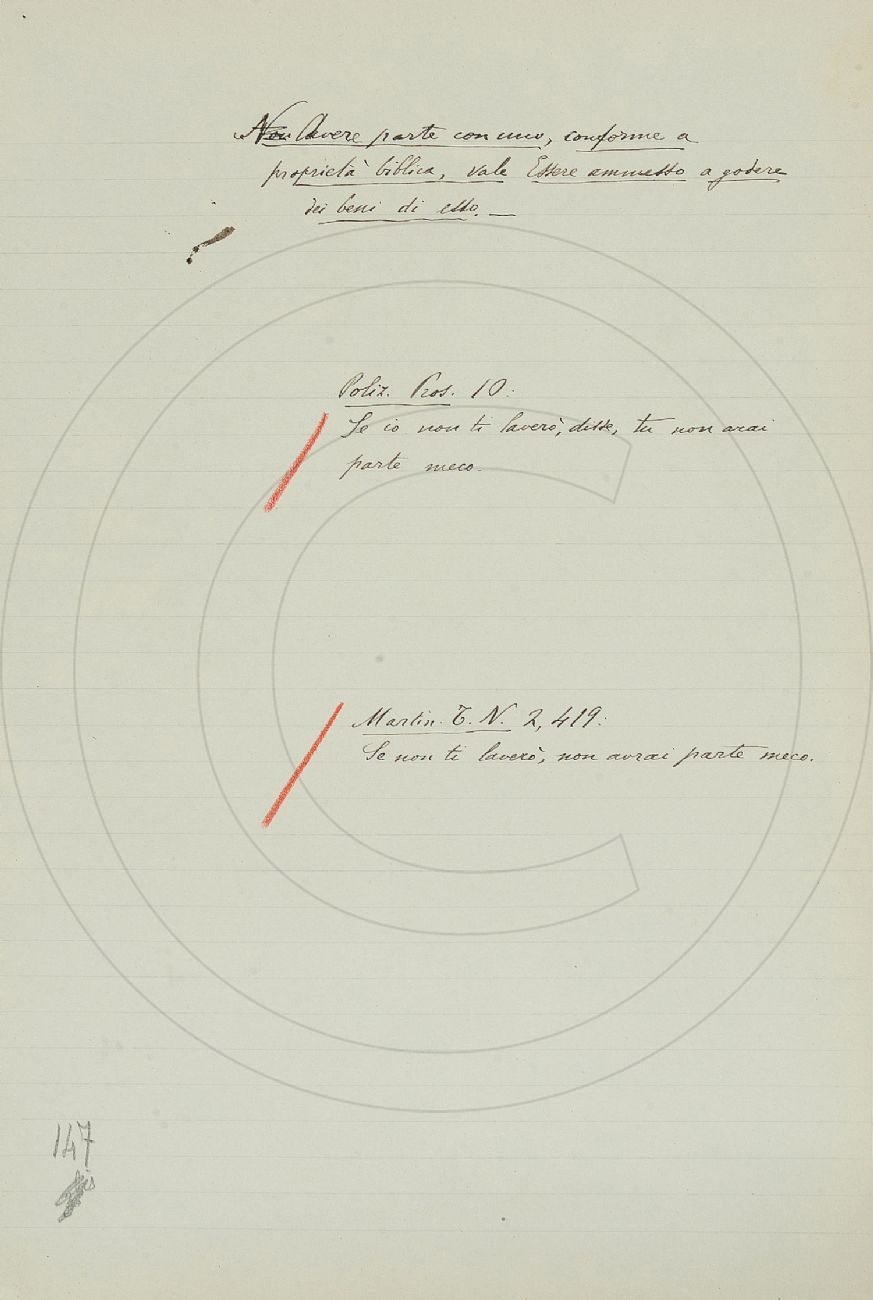 Non Avere parte con uno, conforme a
proprietà biblica, vale Essere ammesso a godere
dei beni di esso. —
Poliz. Pros. 10:
Se io non ti laverò, disse, tu non arai
parte meco.
Martin. T. N. 2, 419:
Se non ti laverò, non avrai parte meco.
147